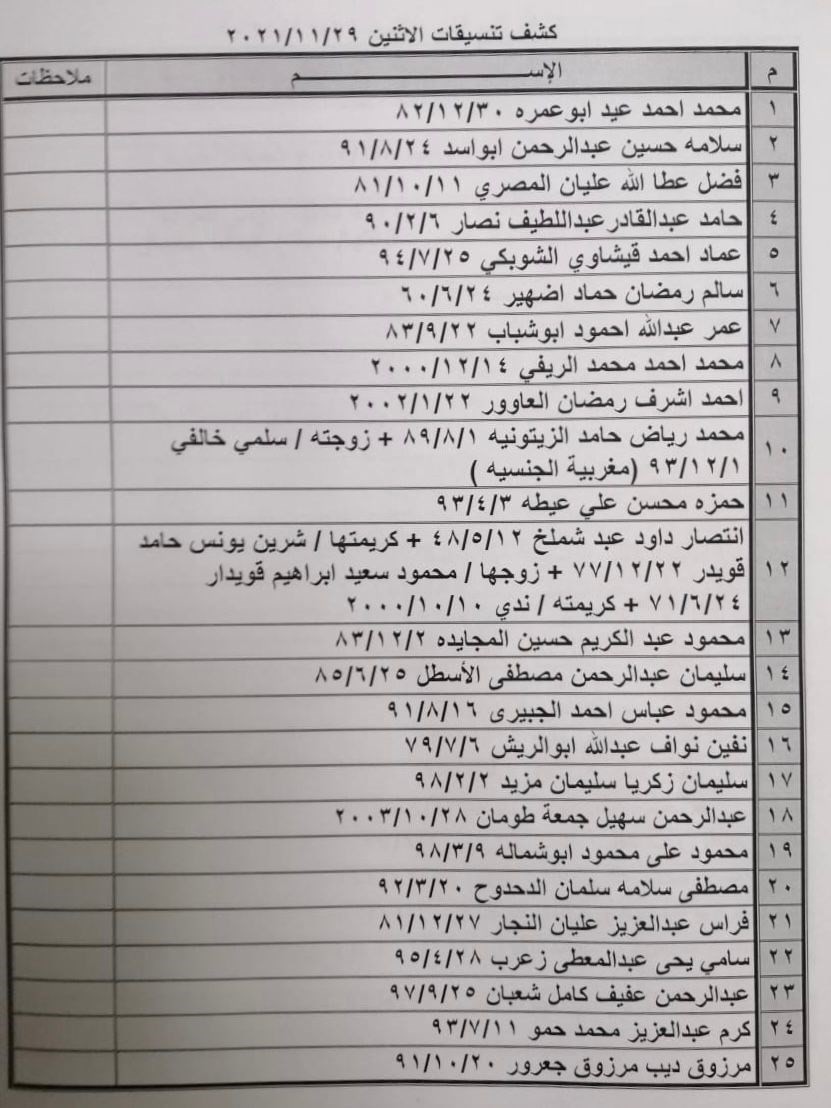 كشف تنسيقات الاثنين ٢٠٢١/١١/٢٩
م الإســـــــــــــــم ملاحظات
١ محمد احمد عيد ابوعمره ٨٢/١٢/٣٠
٢ سلامه حسين عبدالرحمن ابواسد ٩١/٨/٢٤
٣ فضل عطا الله عليان المصري ٨١/١٠/١١
٤ حامد عبدالقادرعبداللطيف نصار ٩٠/٢/٦
٥ عماد احمد قيشاوي الشوبكي ٩٤/٧/٢٥
٦ سالم رمضان حماد اضهير ٦٠/٦/٢٤
٧ عمر عبدالله احمود ابوشباب ٨٣/٩/٢٢
٨ محمد احمد محمد الريفي ٢٠٠٠/١٢/١٤
٩ احمد اشرف رمضان العاوور ٢٠٠٢/١/٢٢
١٠ محمد رياض حامد الزيتونيه ٨٩/٨/١ + زوجته / سلمي خالفي
٩٣/١٢/١ (مغربية الجنسيه )
١١ حمزه محسن علي عيطه ٩٣/٤/٣
انتصار داود عبد شملخ ٤٨/٥/١٢ + كريمتها / شرين يونس حامد
١٢ قويدر ٧٧/١٢/٢٢ + زوجها / محمود سعيد ابراهيم قويدار
٧١/٦/٢٤ + كريمته / ندي ٢٠٠٠/١٠/١٠
١٣ محمود عبد الكريم حسين المجايده ٨٣/١٢/٢
١٤ سليمان عبدالرحمن مصطفى الأسطل ٨٥/٦/٢٥
١٥ محمود عباس احمد الجبيرى ٩١/٨/١٦
١٦ نفين نواف عبدالله ابوالريش ٧٩/٧/٦
١٧ سليمان زكريا سليمان مزيد ٩٨/٢/٢
١٨ عبدالرحمن سهيل جمعة طومان ٢٠٠٣/١٠/٢٨
١٩ محمود على محمود ابوشماله ٩٨/٣/٩
٢٠ مصطفى سلامه سلمان الدحدوح ٩٢/٣/٢٠
٢١ فراس عبدالعزيز عليان النجار ٨١/١٢/٢٧
٢٢ سامي يحى عبدالمعطى زعرب ٩٥/٤/٢٨
٢٣ عبدالرحمن عفيف كامل شعبان ٩٧/٩/٢٥
٢٤ كرم عبدالعزيز محمد حمو ٩٣/٧/١١
٢٥ مرزوق ديب مرزوق جعرور ٩١/١٠/٢٠